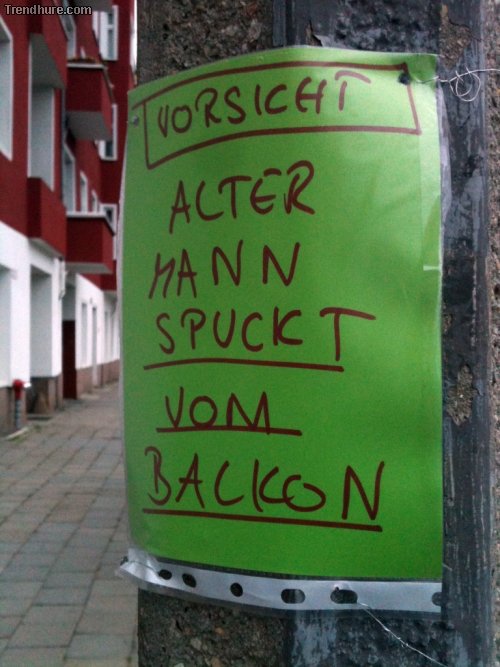 Trendhure.com
VORSICHT
ALTER
MANN
SPUCKT
VOM
BALKON